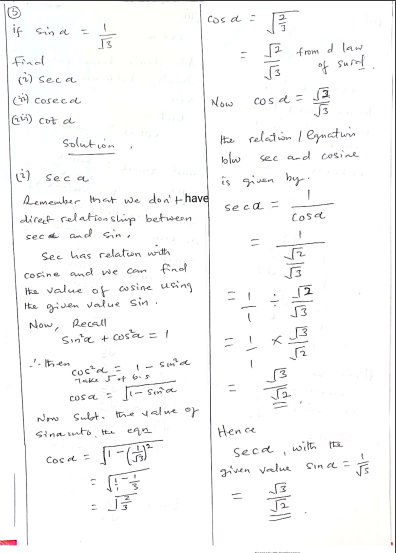 ⑤
if sin α = 1/√3
find
(i) sec α
(ii) cosec α
(iii) cot α
Solution.
(i) sec α
Remember that we don't have
direct relationship between
sec α and sin.
Sec has relation with
cosine and we can find
the value of cosine using
the given value Sin.
Now, Recall
Sin²α + cos²α = 1
∴ then
cos²α = 1 - sin²α
Take √ of b.s
cosα = √(1 - sin²α)
Now Subt. the value of
sinα into the eqn
cosα = √(1 - (1/√3)²)
= √(1/1 - 1/3)
= √(2/3)
cos α = √(2/3)
= √2/√3 from d law
of surd.
Now cos α = √2/√3
the relation / Equation
b/w sec and cosine
is given by.
sec α = 1/cosα
= 1/(√2/√3)
= 1/1 ÷ √2/√3
= 1/1 × √3/√2
= √3/√2
Hence
Secα, with the
given value sin α = 1/√3
= √3/√2.